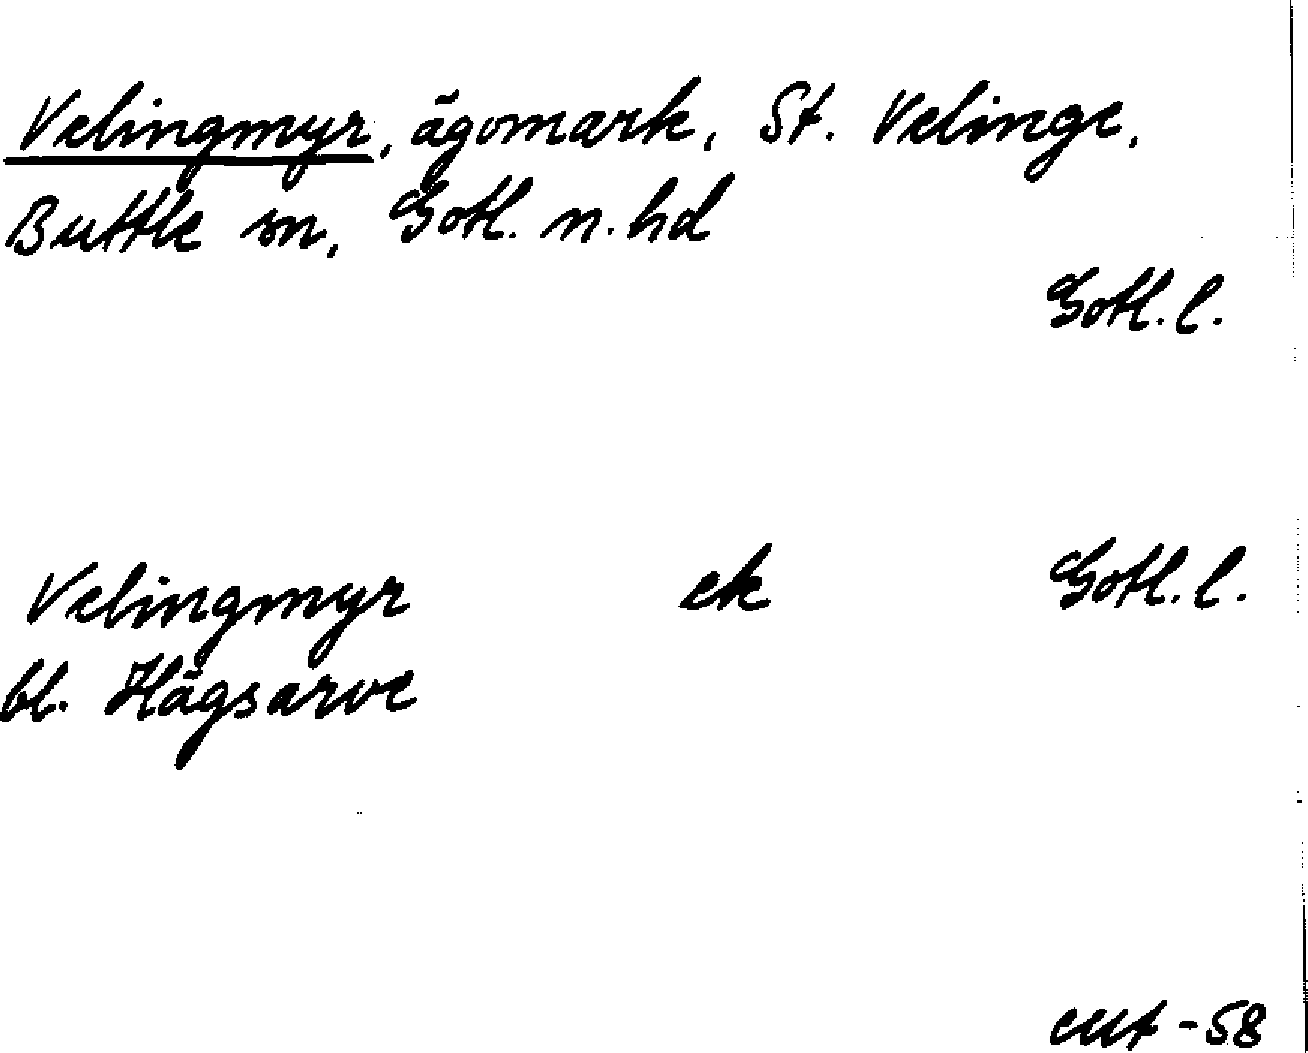 Velingmyr, ägomark, St. Velinge,
Buttle sn, Gotl. n. hd
Gotl. l.
Velingmyr ek Gotl. l.
bl. Hägsarve
-58